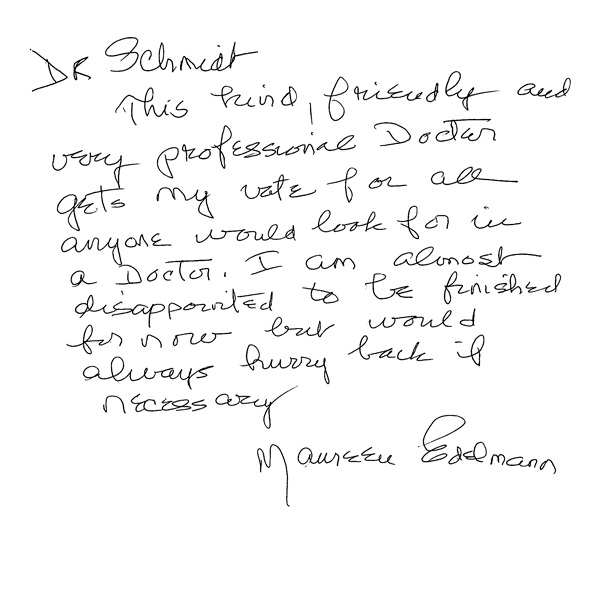 DR Schmidt
This kind, friendly and
very professional Doctor
gets my vote for all
anyone would look for in
a Doctor. I am almost
disappointed to be finished
for now but would
always hurry back if
necessary
Maureen Edelmann